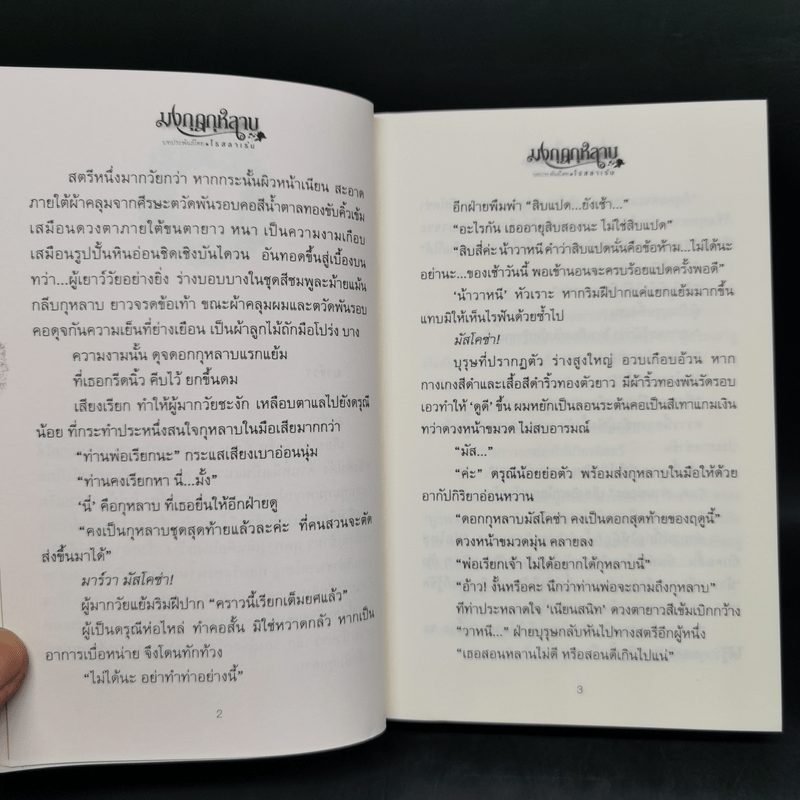 มงกุฎกุหลาบ
บทประพันธ์โดย โรสลาเร็น
สตรีหนึ่งมากวัยกว่า หากกระนั้นผิวหน้าเนียน สะอาด
ภายใต้ผ้าคลุมจากศีรษะตวัดพันรอบคอสีน้ำตาลทองขับคิ้วเข้ม
เสมือนดวงตาภายใต้ขนตายาว หนา เป็นความงามเกือบ
เสมือนรูปปั้นหินอ่อนชิดเชิงบันไดวน อันทอดขึ้นสู่เบื้องบน
ทว่า...ผู้เยาว์วัยอย่างยิ่ง ร่างบอบบางในชุดสีชมพูละม้ายแม้น
กลีบกุหลาบ ยาวจรดข้อเท้า ขณะผ้าคลุมผมและตวัดพันรอบ
คอดุจกันความเย็นที่ย่างเยือน เป็นผ้าลูกไม้ถักมือโปร่ง บาง
ความงามนั้น ดุจดอกกุหลาบแรกแย้ม
ที่เธอกรีดนิ้ว คีบไว้ ยกขึ้นดม
เสียงเรียก ทำให้ผู้มากวัยชะงัก เหลือบตาแลไปยังดรุณี
น้อย ที่กระทำประหนึ่งสนใจกุหลาบในมือเสียมากกว่า
“ท่านพ่อเรียกนะ” กระแสเสียงเบาอ่อนนุ่ม
“ท่านคงเรียกหา นี่...มั้ง”
‘นี่’ คือกุหลาบ ที่เธอยื่นให้อีกฝ่ายดู
“คงเป็นกุหลาบชุดสุดท้ายแล้วละค่ะ ที่คนสวนจะตัด
ส่งขึ้นมาได้”
มาร์วา มัสโคซ่า!
ผู้มากวัยแย้มริมฝีปาก “คราวนี้เรียกเต็มยศแล้ว”
ผู้เป็นดรุณีห่อไหล่ ทำคอสั้น มิใช่หวาดกลัว หากเป็น
อาการเบื่อหน่าย จึงโดนทักท้วง
“ไม่ได้นะ อย่าทำท่าอย่างนี้”
2
มงกุฎกุหลาบ
บทประพันธ์โดย โรสลาเร็น
อีกฝ่ายพึมพำ “สิบแปด...ยังเช้า...”
“อะไรกัน เธออายุสิบสองนะ ไม่ใช่สิบแปด”
“สิบสี่ค่ะ น้าวาหนี คำว่าสิบแปดนั่นคือข้อห้าม...ไม่ได้นะ
อย่านะ...ของเช้าวันนี้ พอเข้านอนจะครบร้อยแปดครั้งพอดี”
‘น้าวาหนี’ หัวเราะ หากริมฝีปากแค่แยกแย้มมากขึ้น
แทบมิให้เห็นไรฟันด้วยซ้ำไป
มัสโคซ่า!
บุรุษที่ปรากฏตัว ร่างสูงใหญ่ อวบเกือบอ้วน หาก
กางเกงสีดำและเสื้อสีดำริ้วทองตัวยาว มีผ้าริ้วทองพันรัดรอบ
เอวทำให้ ‘ดูดี’ ขึ้น ผมหยักเป็นลอนระต้นคอเป็นสีเทาแกมเงิน
ทว่าดวงหน้าขมวด ไม่สบอารมณ์
“มัส...”
“ค่ะ” ดรุณีน้อยย่อตัว พร้อมส่งกุหลาบในมือให้ด้วย
อากัปกิริยาอ่อนหวาน
“ดอกกุหลาบมัสโคซ่า คงเป็นดอกสุดท้ายของฤดูนี้”
ดวงหน้าขมวดมุ่น คลายลง
“พ่อเรียกเจ้า ไม่ได้อยากได้กุหลาบนี่”
“อ้าว! งั้นหรือคะ นึกว่าท่านพ่อจะถามถึงกุหลาบ”
ทีท่าประหลาดใจ ‘เนียนสนิท’ ดวงตายาวสีเข้มเบิกกว้าง
“วาหนี...” ฝ่ายบุรุษกลับหันไปทางสตรีอีกผู้หนึ่ง
“เธอสอนหลานไม่ดี หรือสอนดีเกินไปแน่”
3